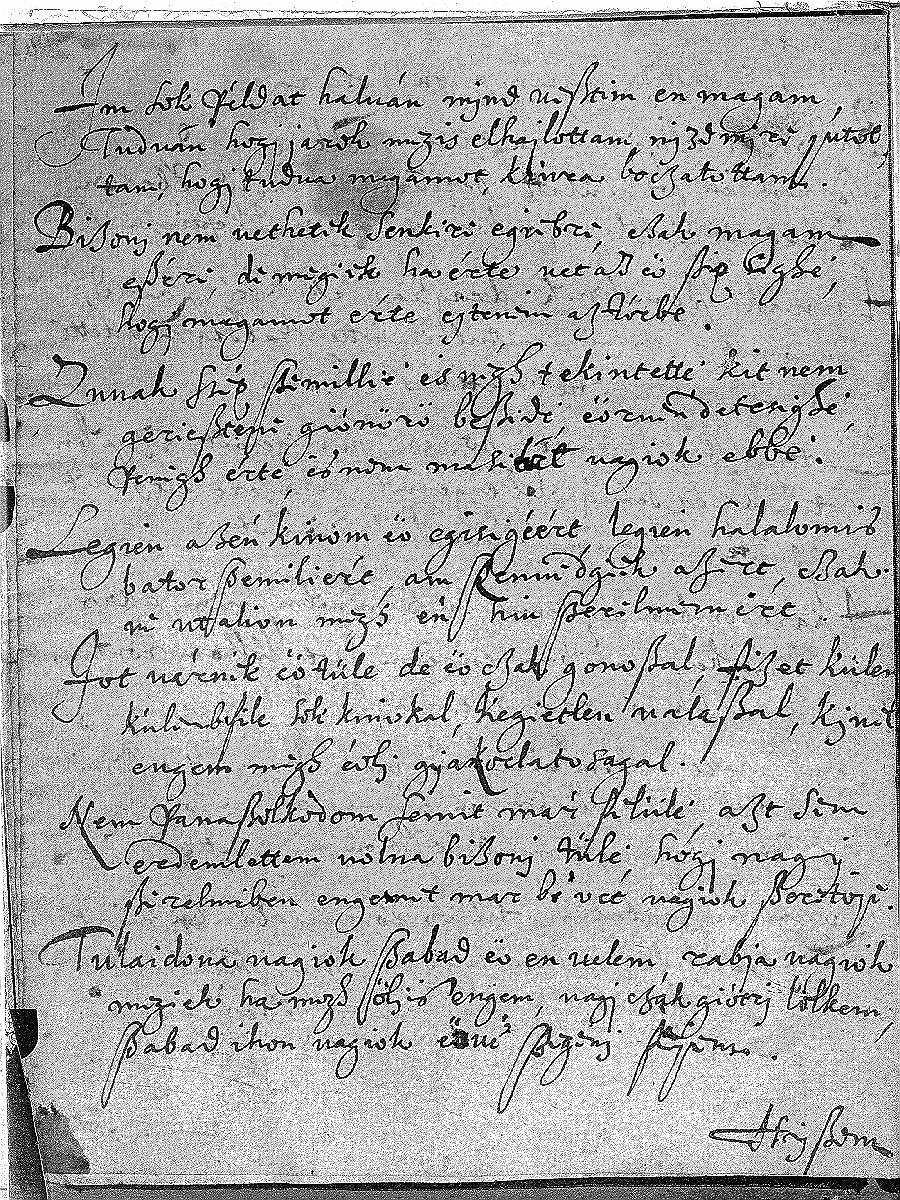 Im sok Peldat haluán mind uesztem en magam,
Tuduán hogj jarok megis elhajlottam, mj
tam, hogj tudua magamot, boczatottam.
Bizonj nem uethetek Senkire egiebre, czak magam
eszere, de megiek ha erte uetad eö szep
hogj magamot erte eytenem az törbe.
Annak szép szemillie es megh tekintette kit nem
geriesztene giönörö beszede, eöruendetesighe,
Penigh erte, es nem masert uagiok ebbe.
Legien az en kinom eö egisigéért, legien halalomis
bator szemilieért, am szenuedgiek azert, czak
ne utalion megh en hiu szerelmemért
Jot uárnék eötüle de eö czak gonoszal, fizet külen
külenbfile sok kinokal, kegietlen ualaszal, kinel
engem megh eöli gyakorlatosagal.
Nem Panaszolkodom semit mari felüle, azt sem
eredemlettem uolna bizonj tüle, hogj nagj
szerelmiben engemet mar be uet uagiok szeretöje.
Tulaidona uagiok szabad eö en uelem, rabja uagiok
megiek ha megh öljis engem, uagj czak giötrj lölkem,
szabad ihon uagiok eöue szegenj fejem.